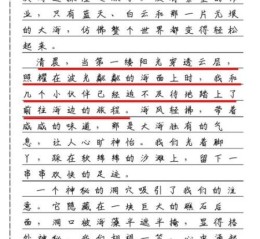 业，只有蓝天、白云和那一片无垠
的大海，仿佛整个世界都变得轻松
起来。
清晨，当第一缕阳光穿透云层，
照耀在波光粼粼的海面上时，我和
几个小伙伴已经迫不及待地踏上了
前往海边的旅程。海风轻拂，带着
咸咸的味道，那是大海独有的气
息，让人心旷神怡。我们光着脚
丫，踩在软绵绵的沙滩上，留下一
串串欢快的足迹。
一个神秘的洞穴吸引了我们的注
意。它隐藏在一块巨大的礁石后
面，洞口被海藻半遮半掩，显得格